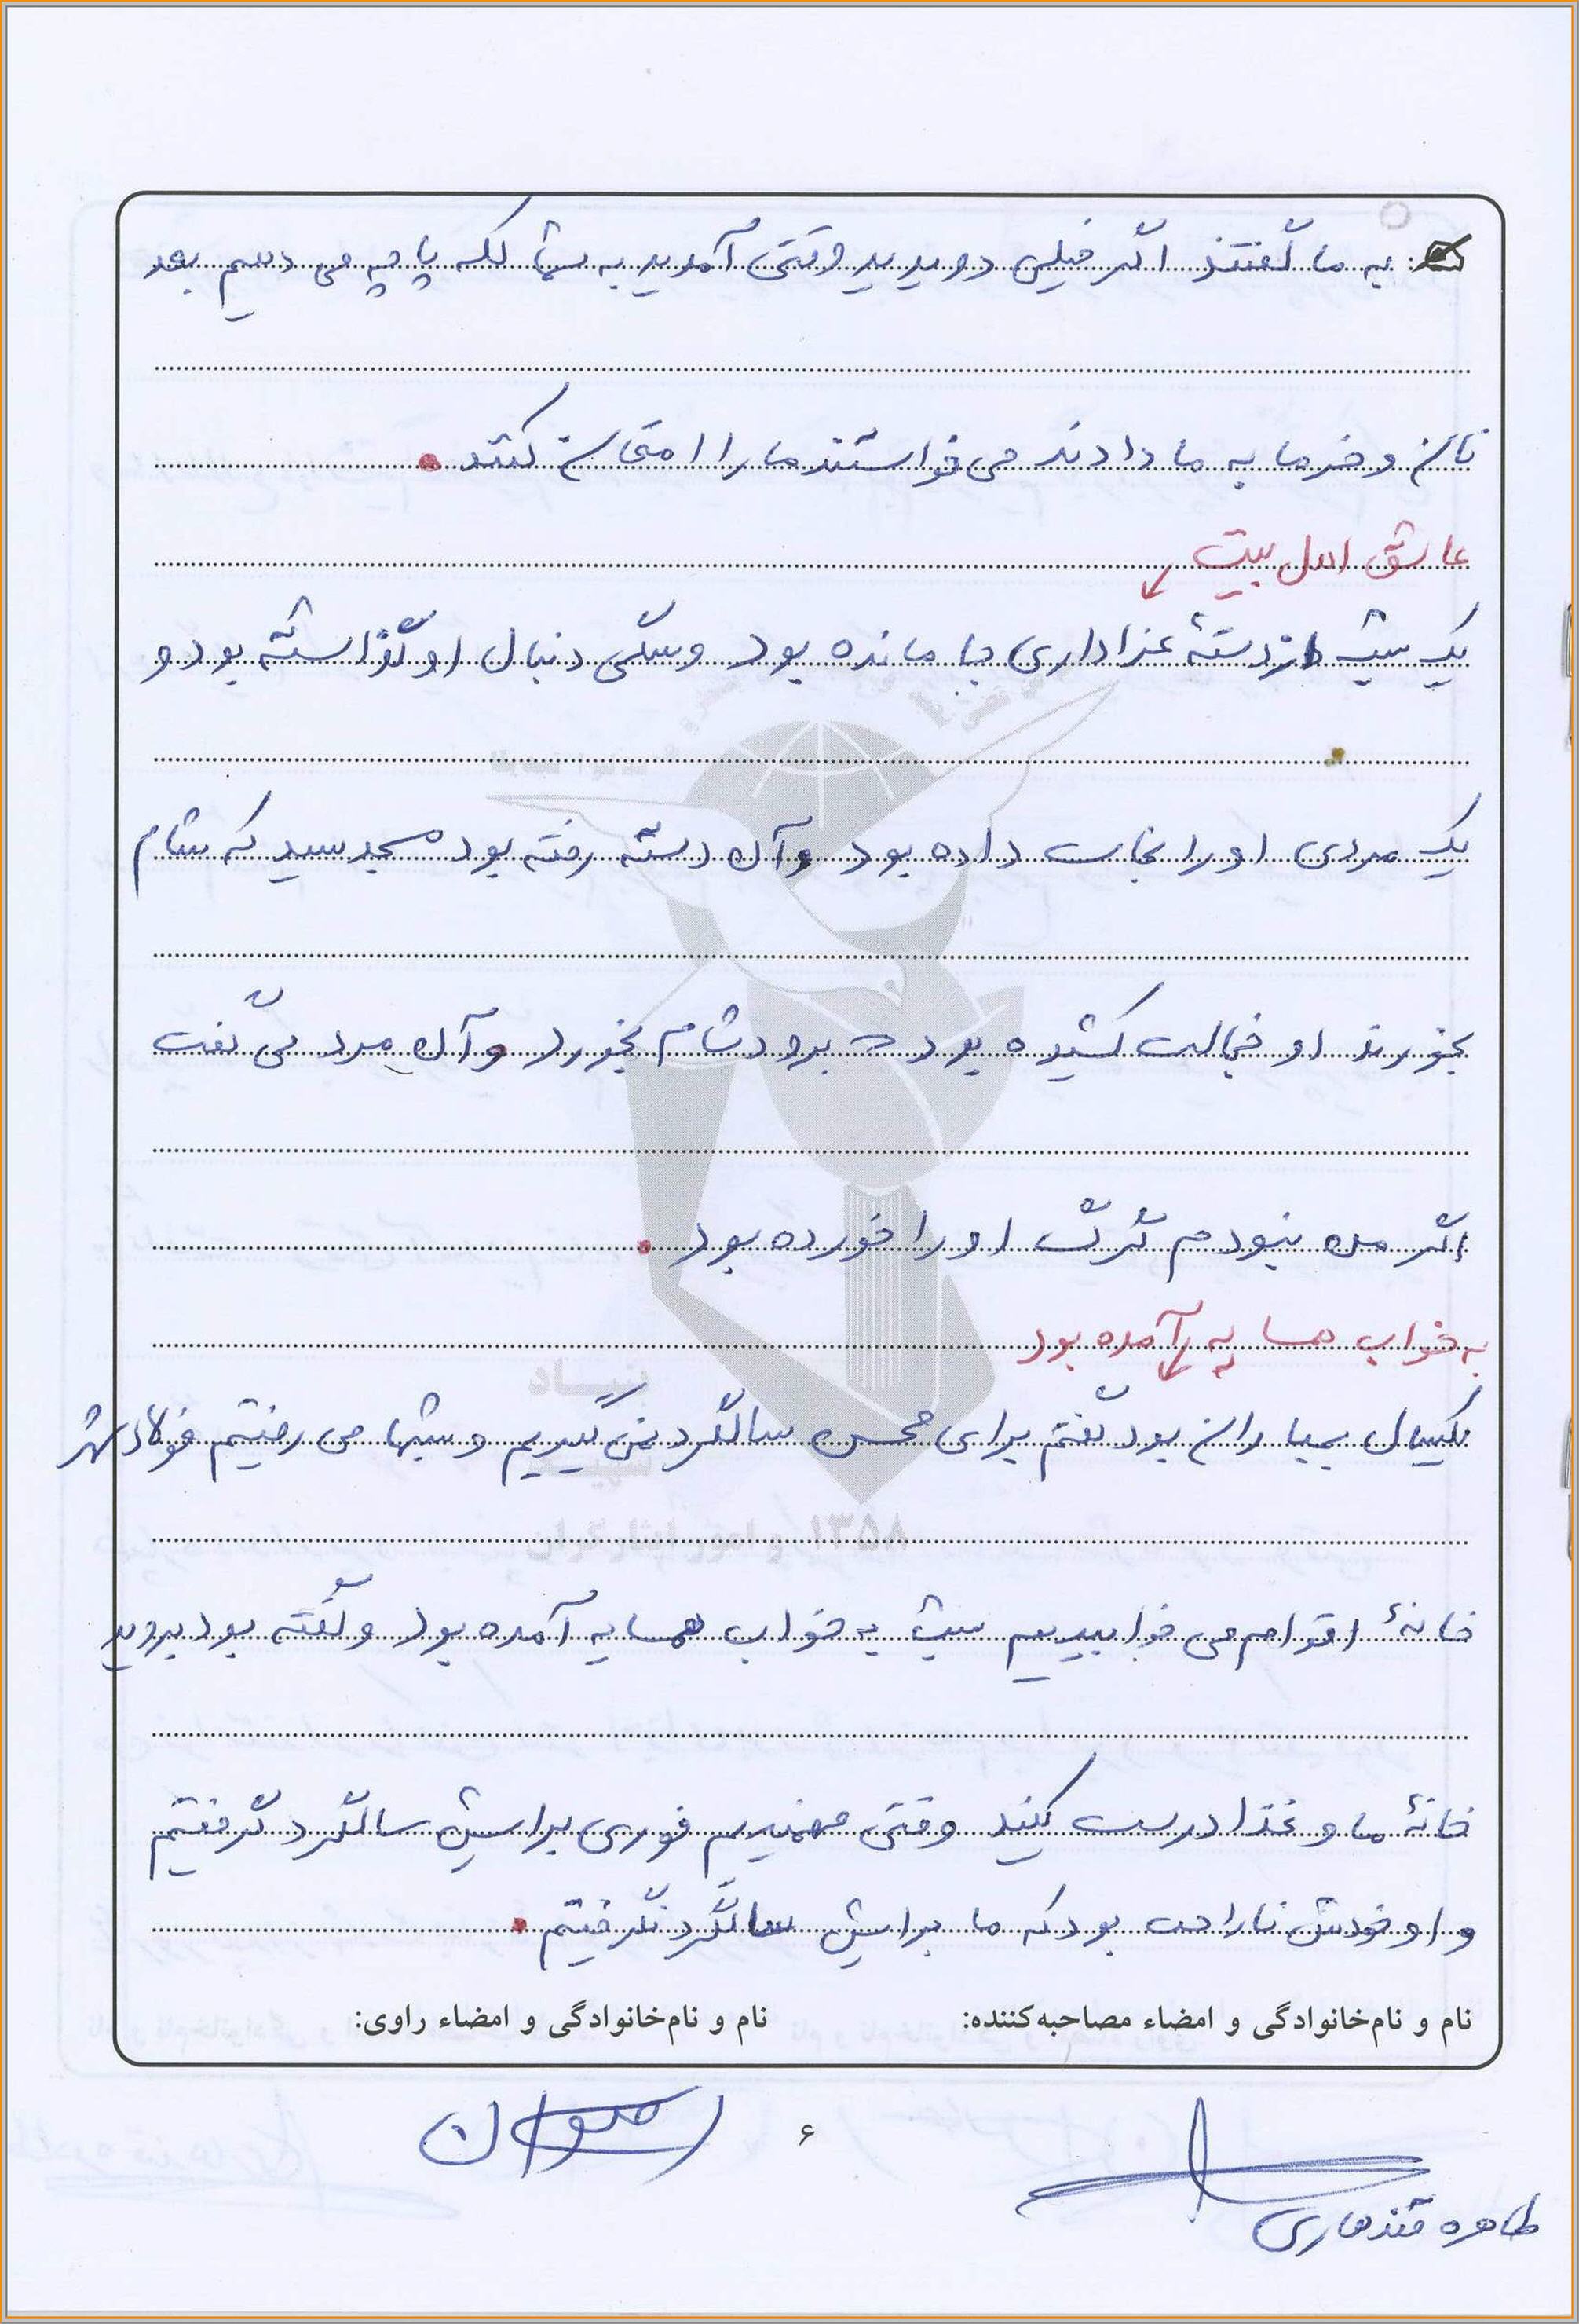 به ما گفتند اگر خیلی دویدید وقتی آمدید به شما کله پاچه می دهیم بعد
نان و خرما به ما دادند می خواستند ما را امتحان کنند.
عاشق اهل بیت
یک شب از دستهٔ عزاداری جا مانده بود و سگی دنبال او گذاشته بود و
یک مردی او را نجات داده بود و آن دسته رفته بود مسجد سید که شام
بخورند او خجالت کشیده بود برود شام بخورد و آن مرد می گفت
اگر من نبودم گرگ او را خورده بود.
به خواب همسایه آمده بود
یکسال بمباران بود گفتم برای محسن سالگرد نمی گیریم و شبها می رفتیم فولادشهر
خانهٔ اقوام می خوابیدیم شب به خواب همسایه آمده بود و گفته بود بروید
خانهٔ ما و غذا درست کنید وقتی فهمیدیم فوری برایش سالگرد گرفتیم
و او خودش ناراحت بود که ما برایش سالگرد نگرفتیم.
نام و نام‌خانوادگی و امضاء مصاحبه‌کننده: نام و نام‌خانوادگی و امضاء راوی:
۶
طاهره قندهاری
بنیاد
شهید
و امور ایثارگران ۱۳۵۸